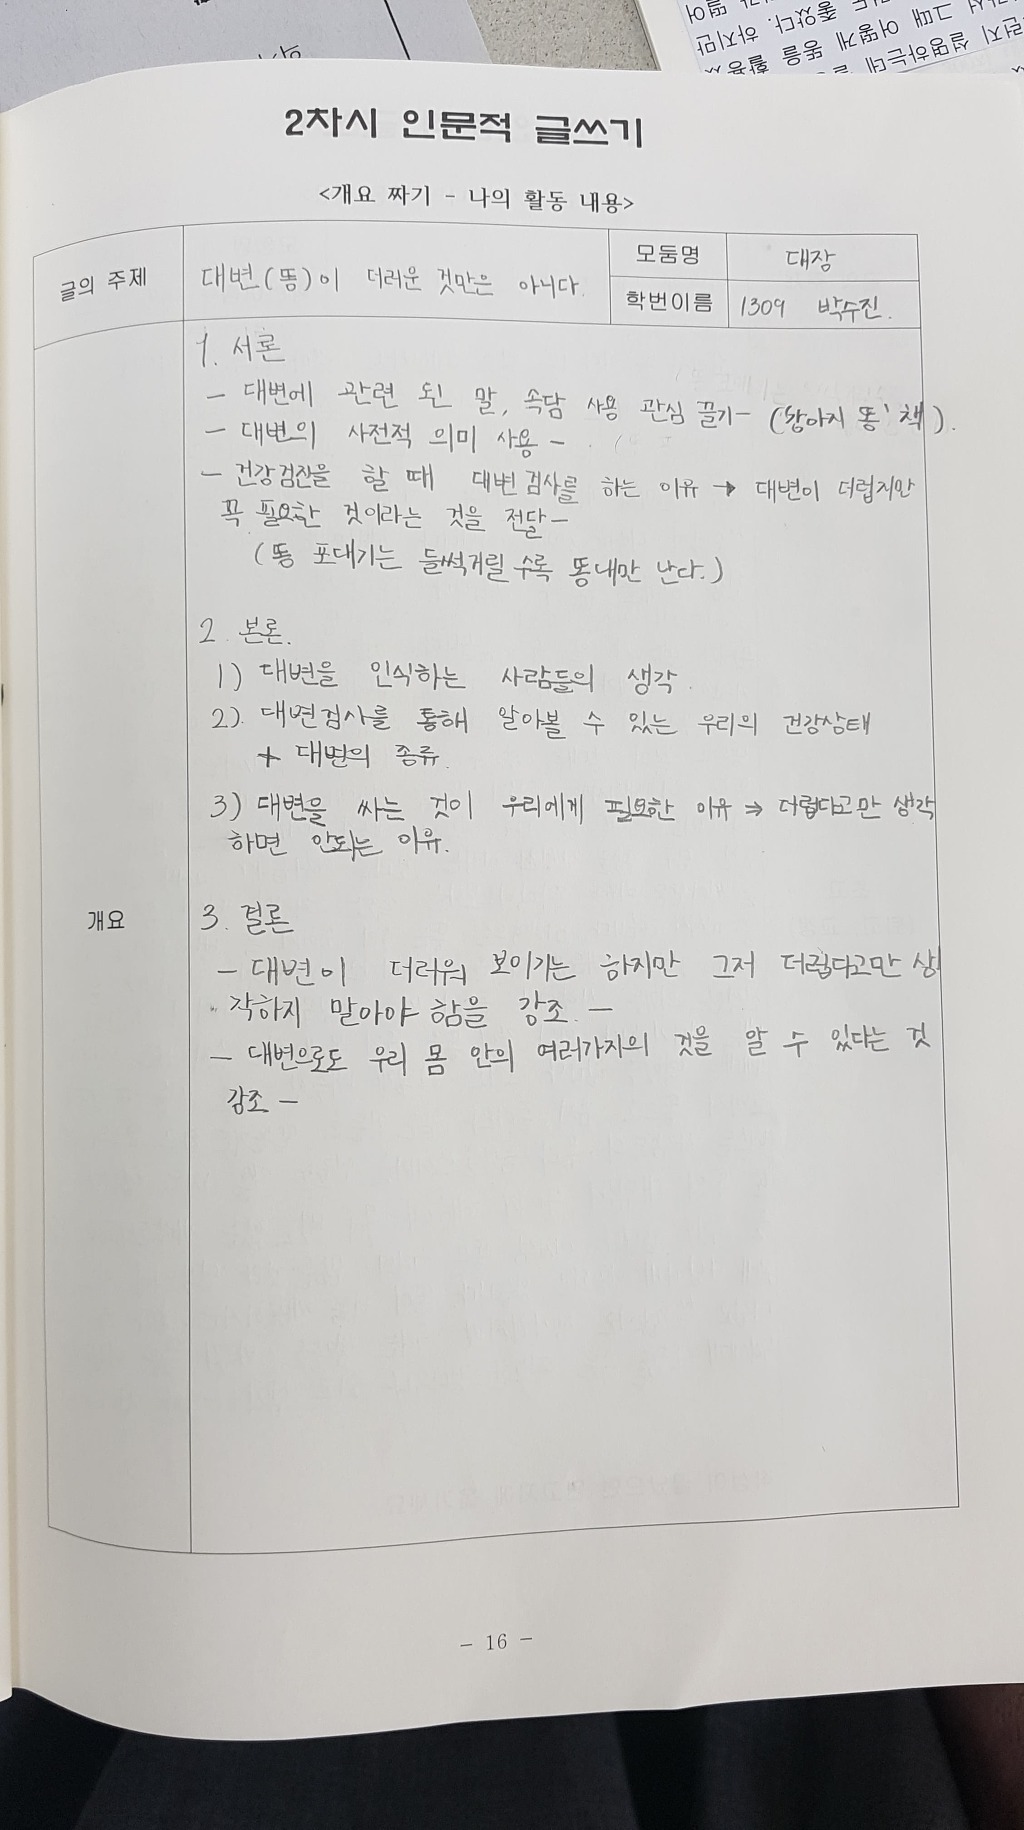 2차시 인문적 글쓰기
<개요 짜기 - 나의 활동 내용>
글의 주제
대변(똥)이 더러운 것만은 아니다.
모둠명
대장
학번이름
1309 박수진.
1. 서론
- 대변에 관련 된 말, 속담 사용 관심 끌기- (강아지 똥' 책).
- 대변의 사전적 의미 사용 -
- 건강검진을 할 때 대변검사를 하는 이유 → 대변이 더럽지만
꼭 필요한 것이라는 것을 전달-
(똥 포대기는 들썩거릴 수록 똥내만 난다.)
2. 본론.
1) 대변을 인식하는 사람들의 생각.
2). 대변검사를 통해 알아볼 수 있는 우리의 건강상태
+ 대변의 종류.
3) 대변을 싸는 것이 우리에게 필요한 이유 → 더럽다고만 생각
하면 안되는 이유.
개요
3. 결론
- 대변이 더러워 보이기는 하지만 그저 더럽다고만 생
각하지 말아야 함을 강조. -
- 대변으로도 우리 몸 안의 여러가지의 것을 알 수 있다는 것
강조 -
- 16 -